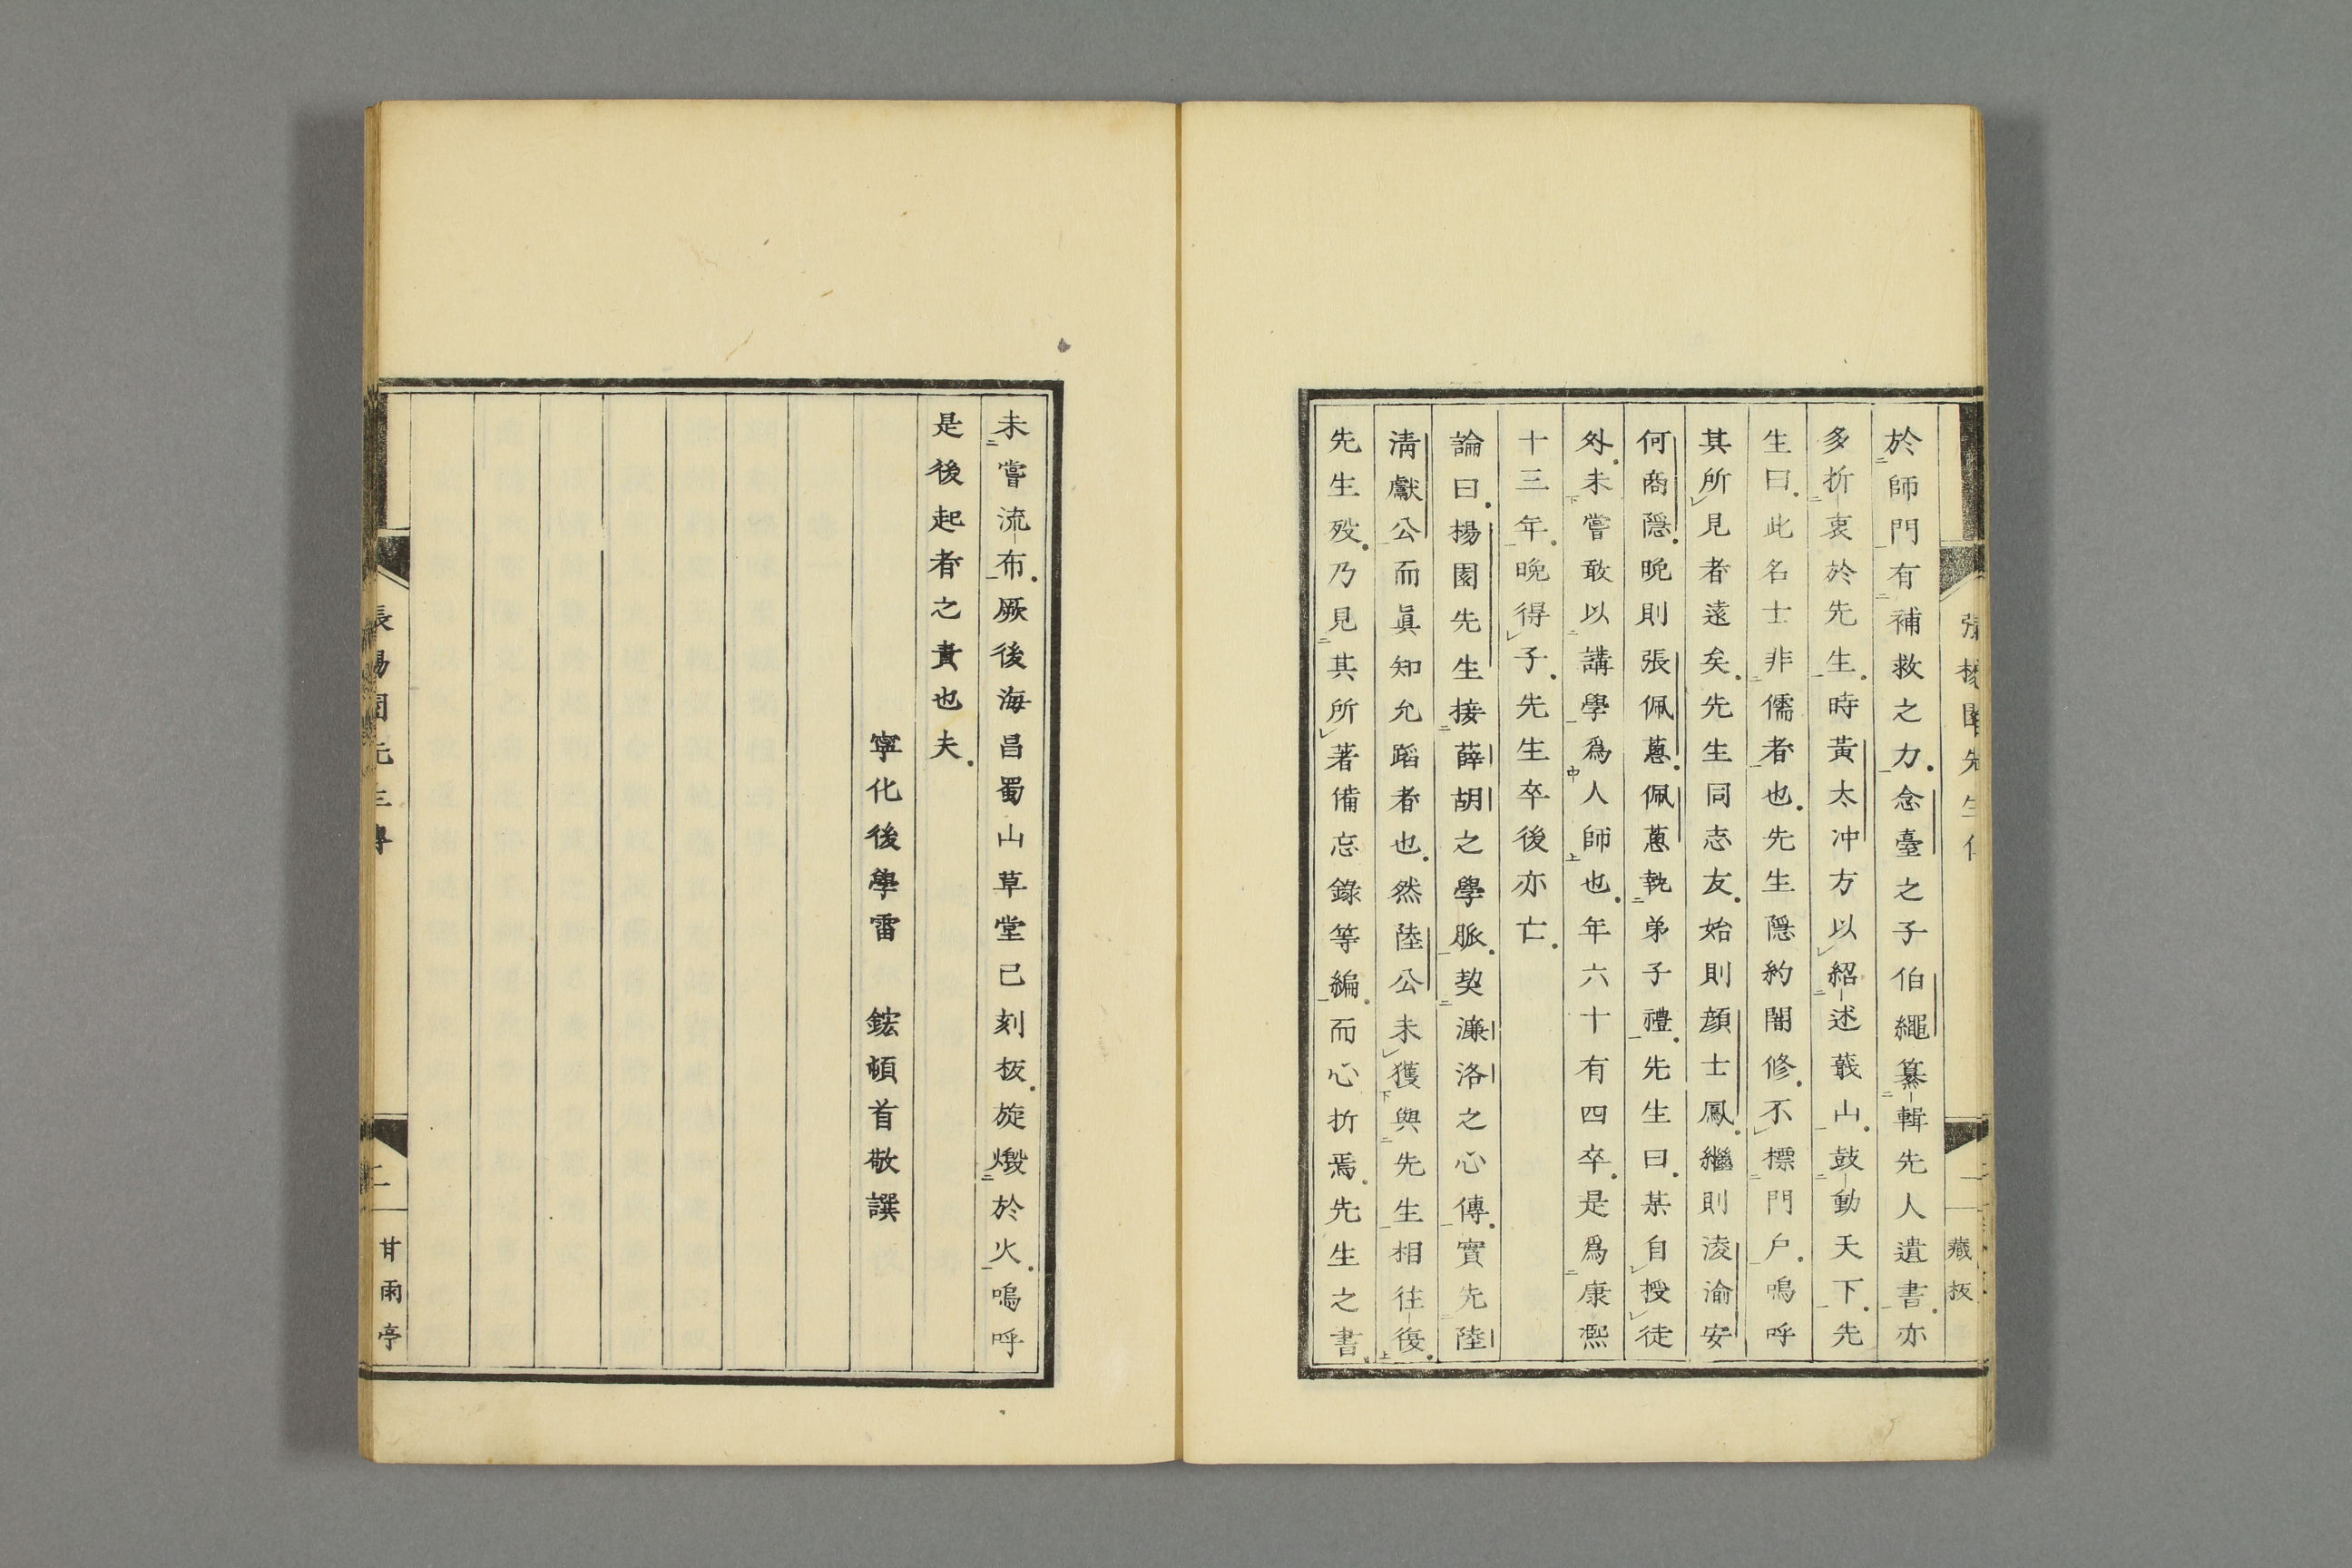 於師門有補救之力念臺之子伯繩纂輯先人遺書亦
多折衷於先生時黃太冲方以紹述蕺山鼓動天下先
生曰此名士非儒者也先生隱約闇修不標門戶嗚呼
其所見者遠矣先生同志友始則顔士鳳繼則淩渝安
何商隱晩則張佩蔥佩蔥執弟子禮先生曰某自授徒
外未嘗敢以講學爲人師也年六十有四卒是爲康熙
十三年晩得子先生卒後亦亡
論曰楊園先生接薛胡之學脈契濂洛之心傳實先陸
淸獻公而眞知允蹈者也然陸公未獲與先生相往復
先生歿乃見其所著備忘錄等編而心折焉先生之書
未嘗流布厥後海昌蜀山草堂已刻板旋燬於火嗚呼
是後起者之責也夫
寧化後學雷 鋐頓首敬譔
張楊園先生傳
二
甘雨亭
藏板